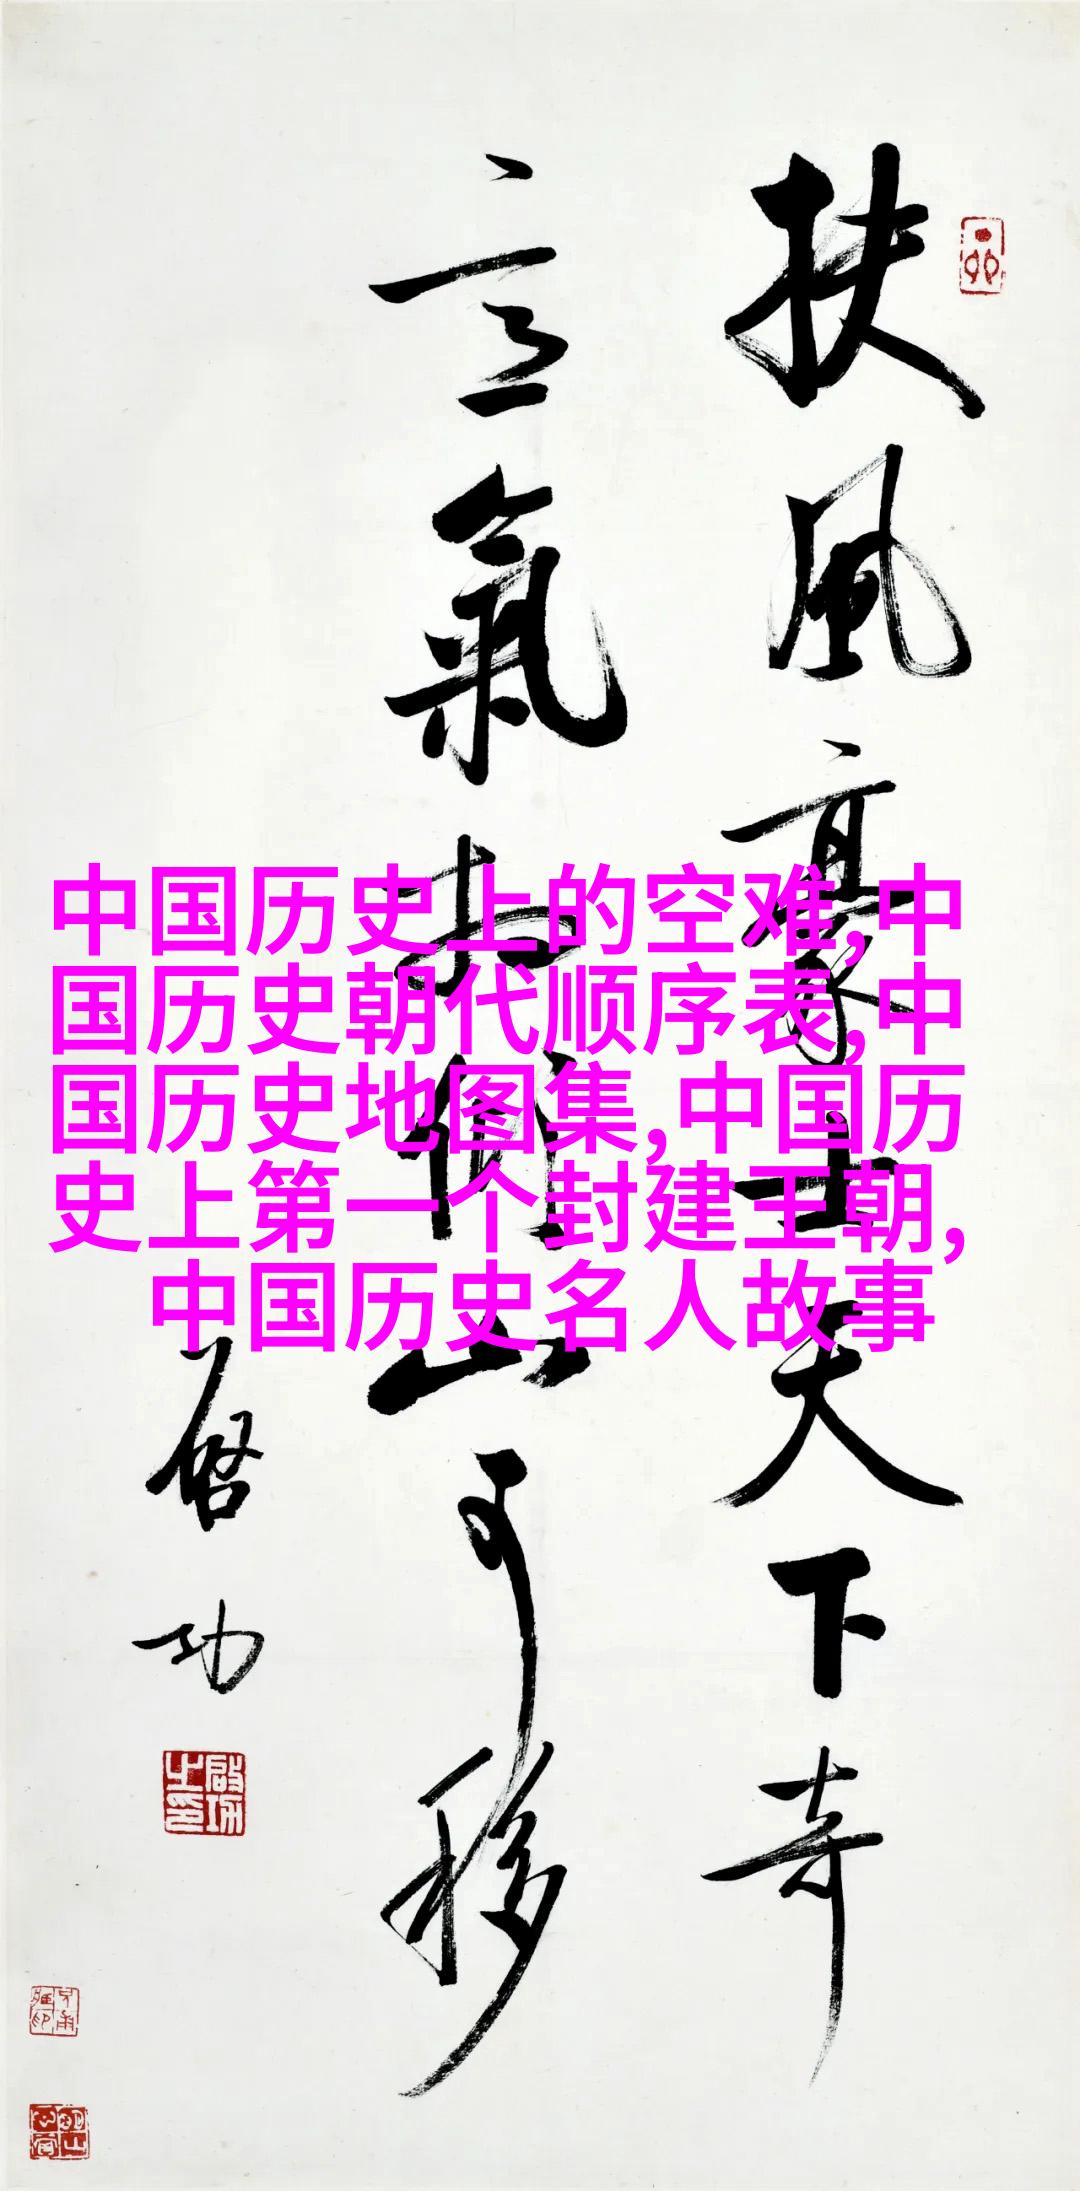 扶風豪士天下奇
意氣相傾山可移
啓功
啓功之印
中国历史上的空难,中
国历史朝代顺序表,中
国历史地图集,中国历
史上第一个封建王朝,
中国历史名人故事